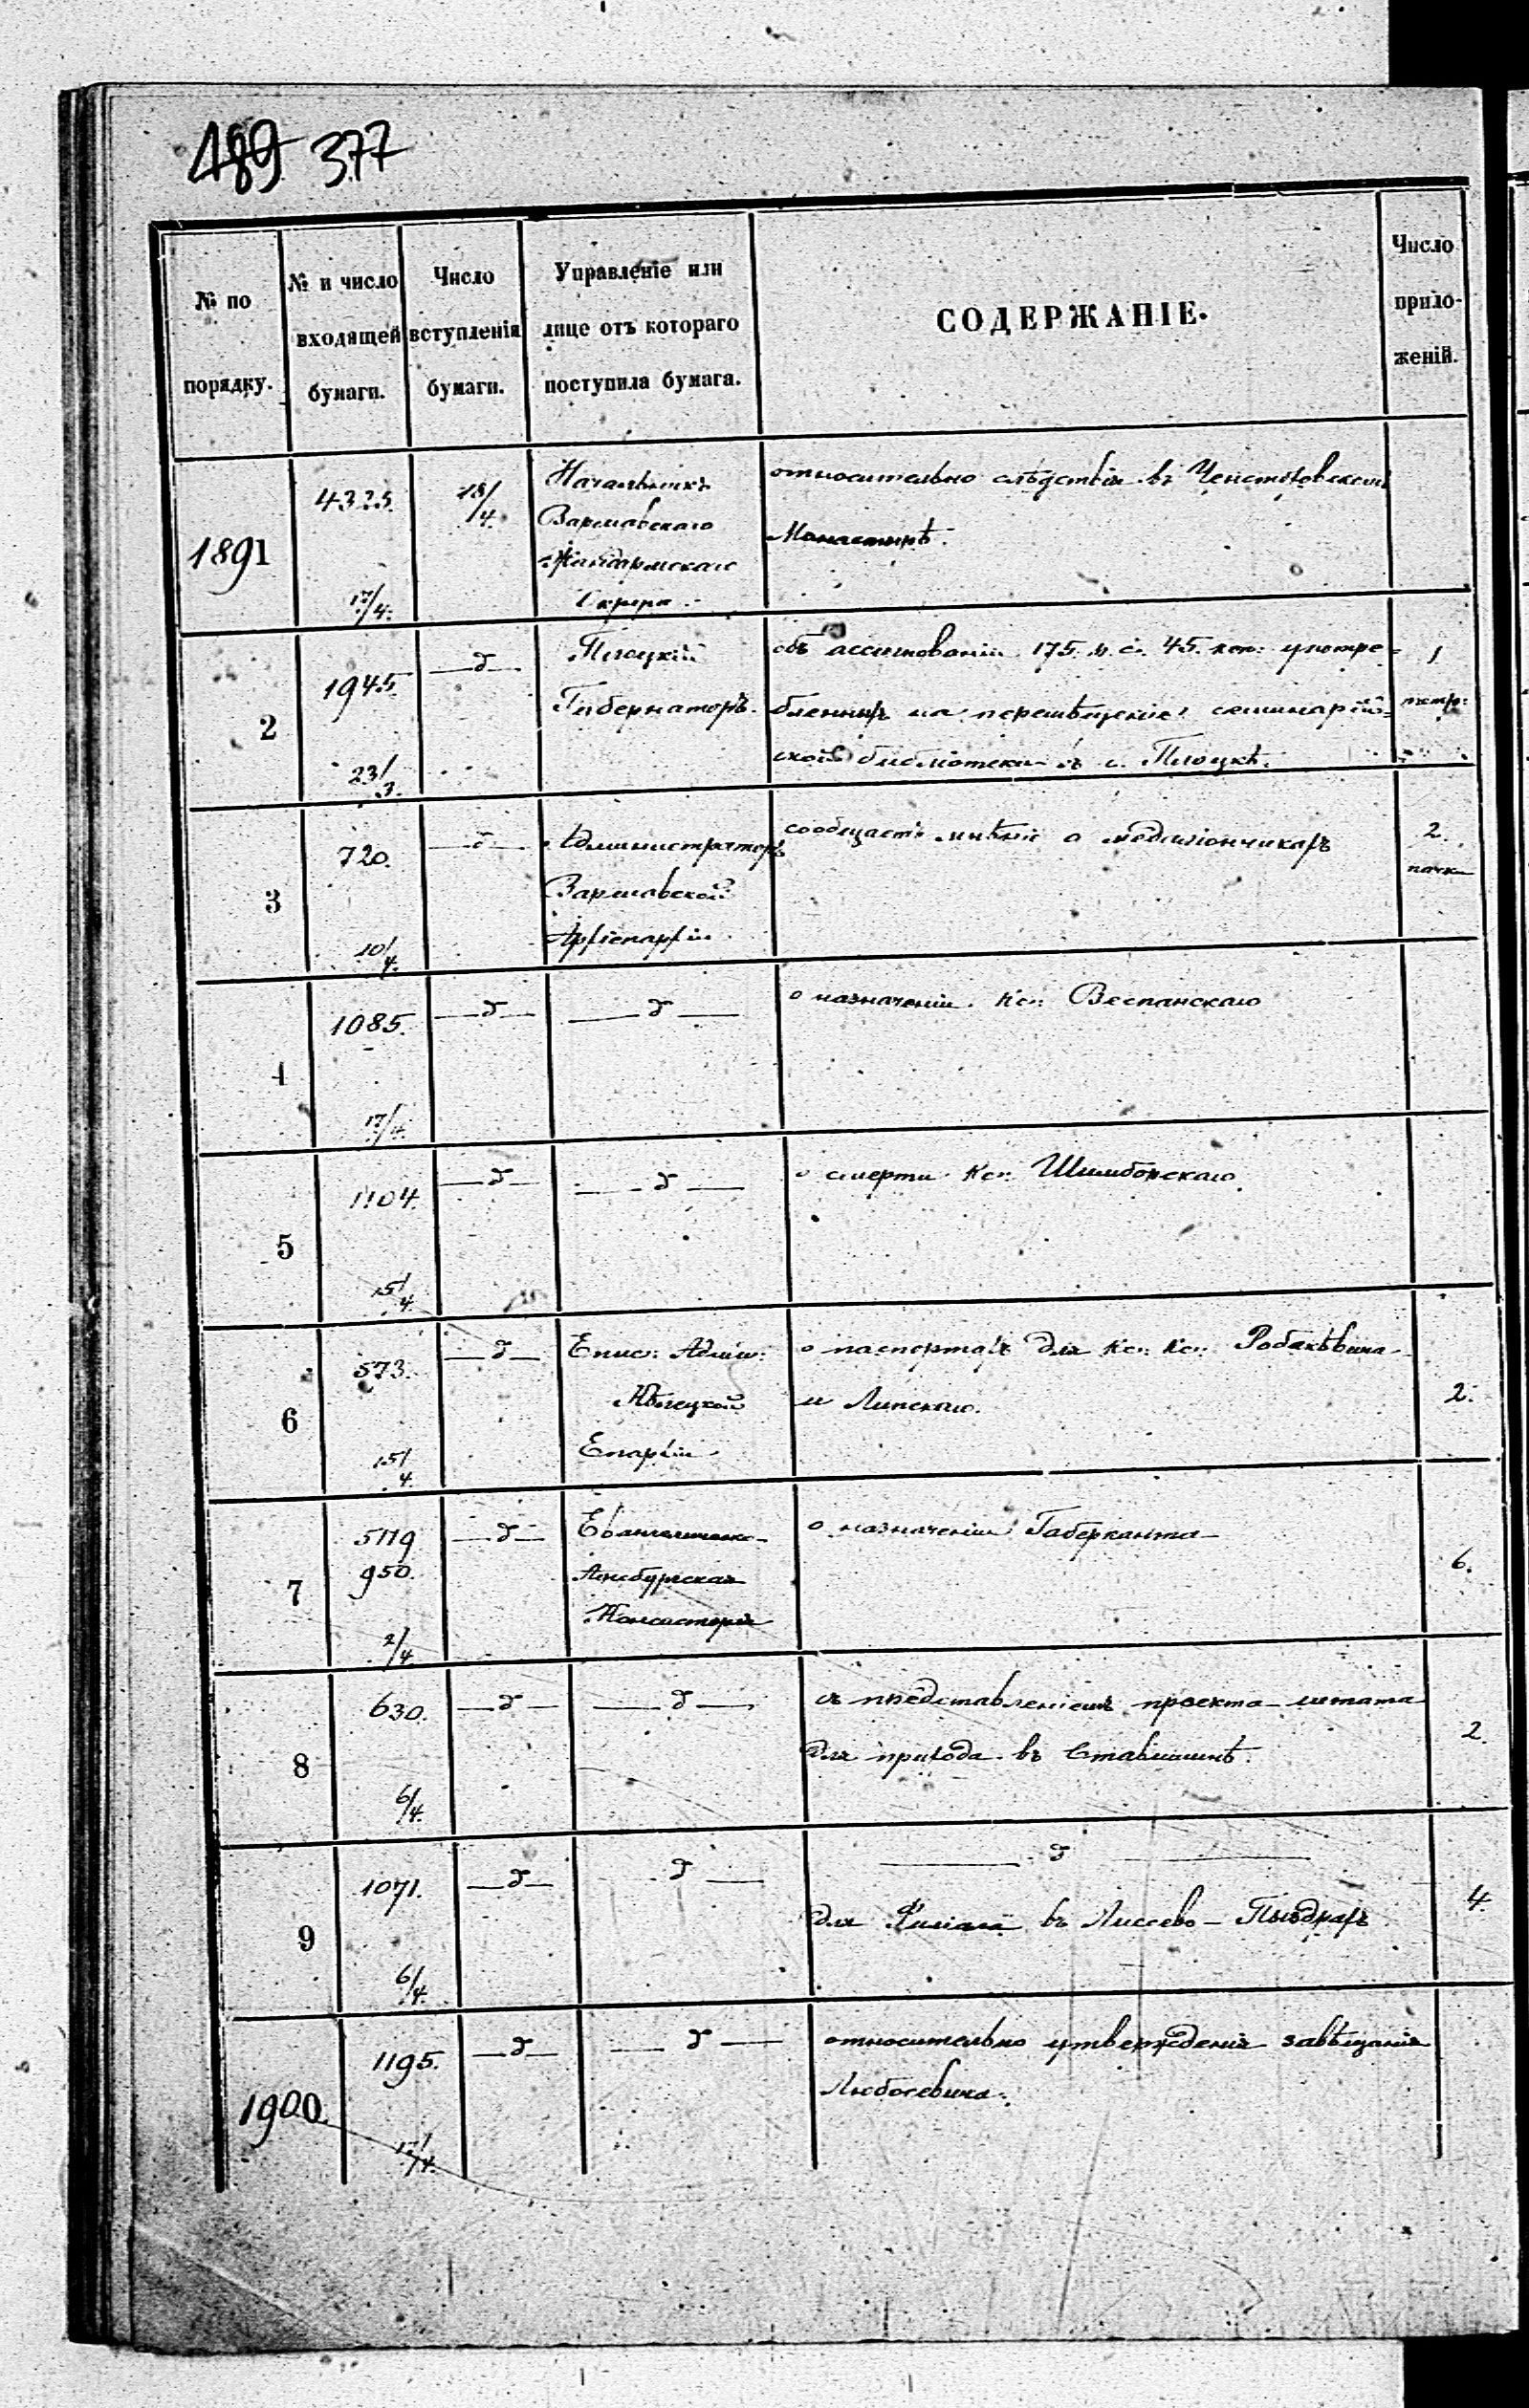 489 377
№ по порядку.
№ и число входящей бумаги.
Число вступленія бумаги.
Управленіе или лице отъ котораго поступила бумага.
СОДЕРЖАНІЕ.
Число приложеній.
1891
4325.
17/4.
18/4.
Начальникъ
Варшавскаго
Жандармскаго
Округа.
относительно слѣдствія въ Ченстоховскомъ
Монастырѣ.
2
1945.
23/3.
—д—
Плоцкій
Губернаторъ.
объ ассигнованіи 175. р. с. 45. коп: употре-
бленныхъ на перемѣщеніе семинарій-
ской библіотеки въ г. Плоцкѣ.
1
3
720.
10/4.
—д—
Администраторъ
Варшавской
Архіепархіи
сообщаетъ мнѣніе о медаліончикахъ
2.
пачки
4
1085.
17/4.
—д—
—д—
о назначеніи Кс: Веспанскаго
5
1104.
15/4
—д—
—д—
о смерти Кс: Шимборскаго.
6
573.
15/4.
—д—
Епис: Админ:
Епархіи
о паспортахъ для Кс: Кс:
и Липскаго.
2.
7
5119
950.
2/4.
—д—
Евангелическо-
Аугсбургская
Консисторія
о назначеніи Габерканта
6.
8
630.
6/4.
—д—
—д—
съ представленіемъ проекта штата
для прихода въ Ставишинѣ.
2.
9
1071.
6/4.
—д—
—д—
—д—
для Филіала въ Лиссево-Пыздрахъ
4.
1900.
1195.
17/4.
—д—
—д—
относительно утвержденія завѣщанія